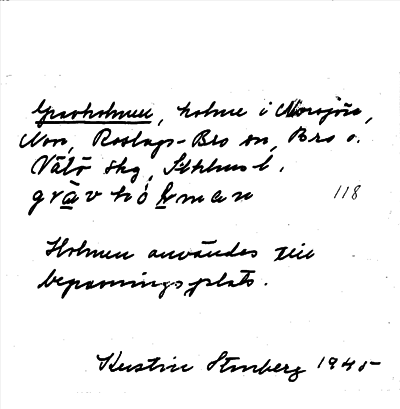 Gravholmen, holme i Norrsjön,
Norr, Roslags-Bro sn, Bro o.
Vätö skg, Sthlms l.
gràvhólman 118
Holmen användes till
begravningsplats.
Kerstin Stenberg 1945